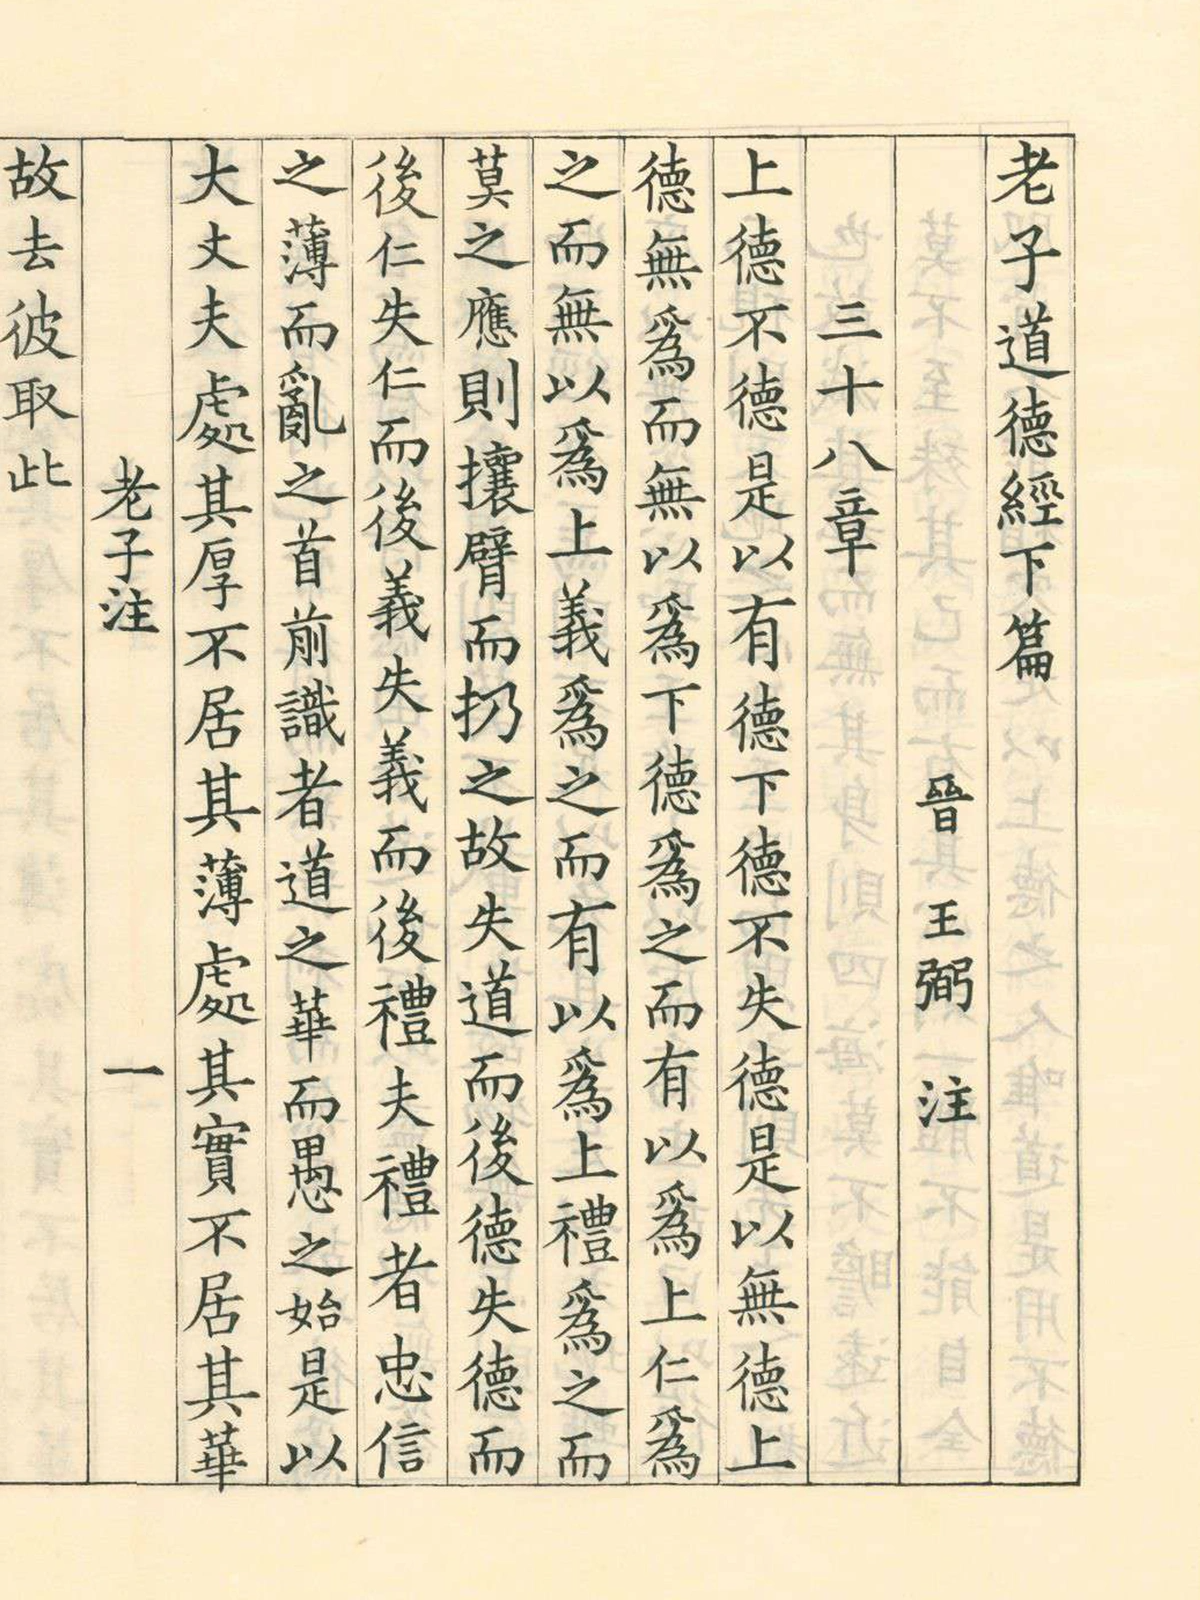 老子道德經下篇
晉王弼注
三十八章
上德不德是以有德下德不失德是以無德上
德無爲而無以爲下德爲之而有以爲上仁爲
之而無以爲上義爲之而有以爲上禮爲之而
莫之應則攘臂而扔之故失道而後德失德而
後仁失仁而後義失義而後禮夫禮者忠信
之薄而亂之首前識者道之華而愚之始是以
大丈夫處其厚不居其薄處其實不居其華
老子注 一
故去彼取此